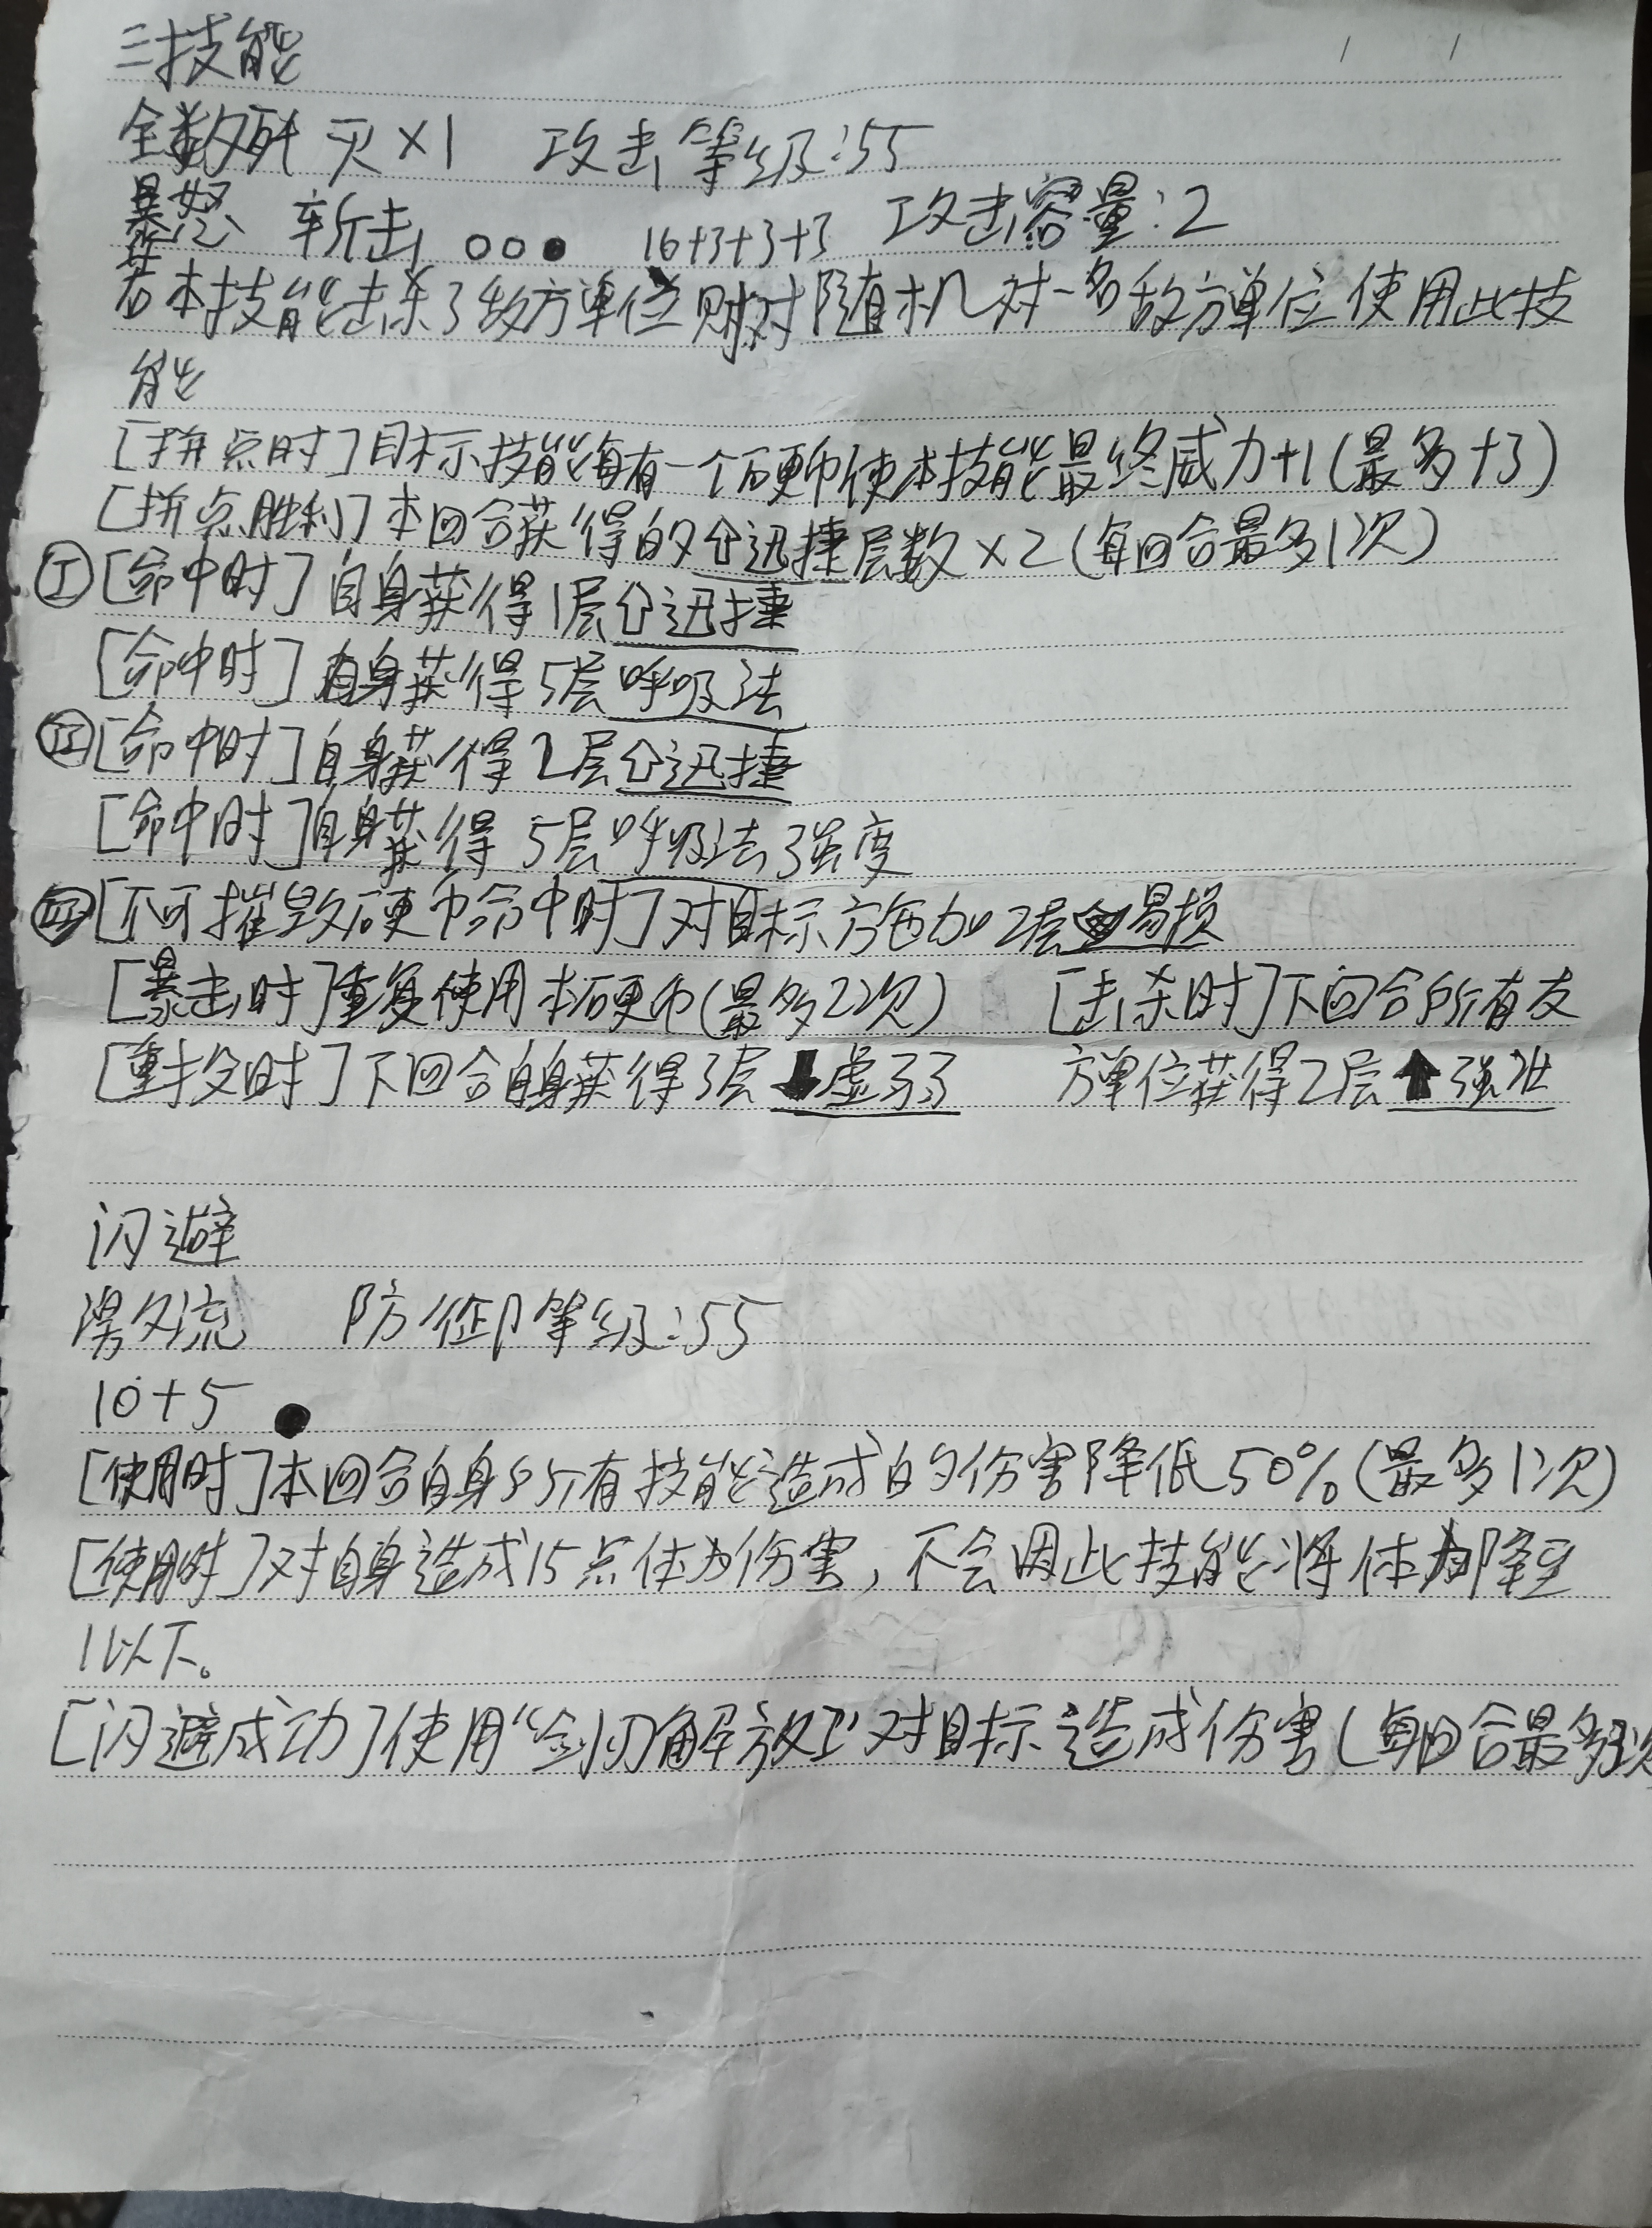 三技能
全数歼灭×1 攻击等级:55
暴怒 斩击 ○○● 16+3+3+3 攻击容量:2
若本技能击杀了敌方单位则对随机对一名敌方单位使用此技
能
[拼点时]目标技能每有一个硬币使本技能最终威力+1(最多+3)
[拼点胜利]本回合获得的⇧迅捷层数×2(每回合最多1次)
Ⅰ[命中时]自身获得1层⇧迅捷
[命中时]自身获得5层呼吸法
Ⅱ[命中时]自身获得2层⇧迅捷
[命中时]自身获得5层呼吸法强度
Ⅲ[不可摧毁硬币命中时]对目标施加2层易损
[暴击时]重复使用本硬币(最多2次) [击杀时]下回合所有友
[重投时]下回合自身获得3层⬇虚弱 方单位获得2层⬆强壮
闪避
防御等级:55
10+5 ●
[使用时]本回合自身所有技能造成的伤害降低50%(最多1次)
[使用时]对自身造成15点体力伤害,不会因此技能将体力降至
1以下。
[闪避成功]使用“剑刃解放Ⅱ”对目标造成伤害(每回合最多次